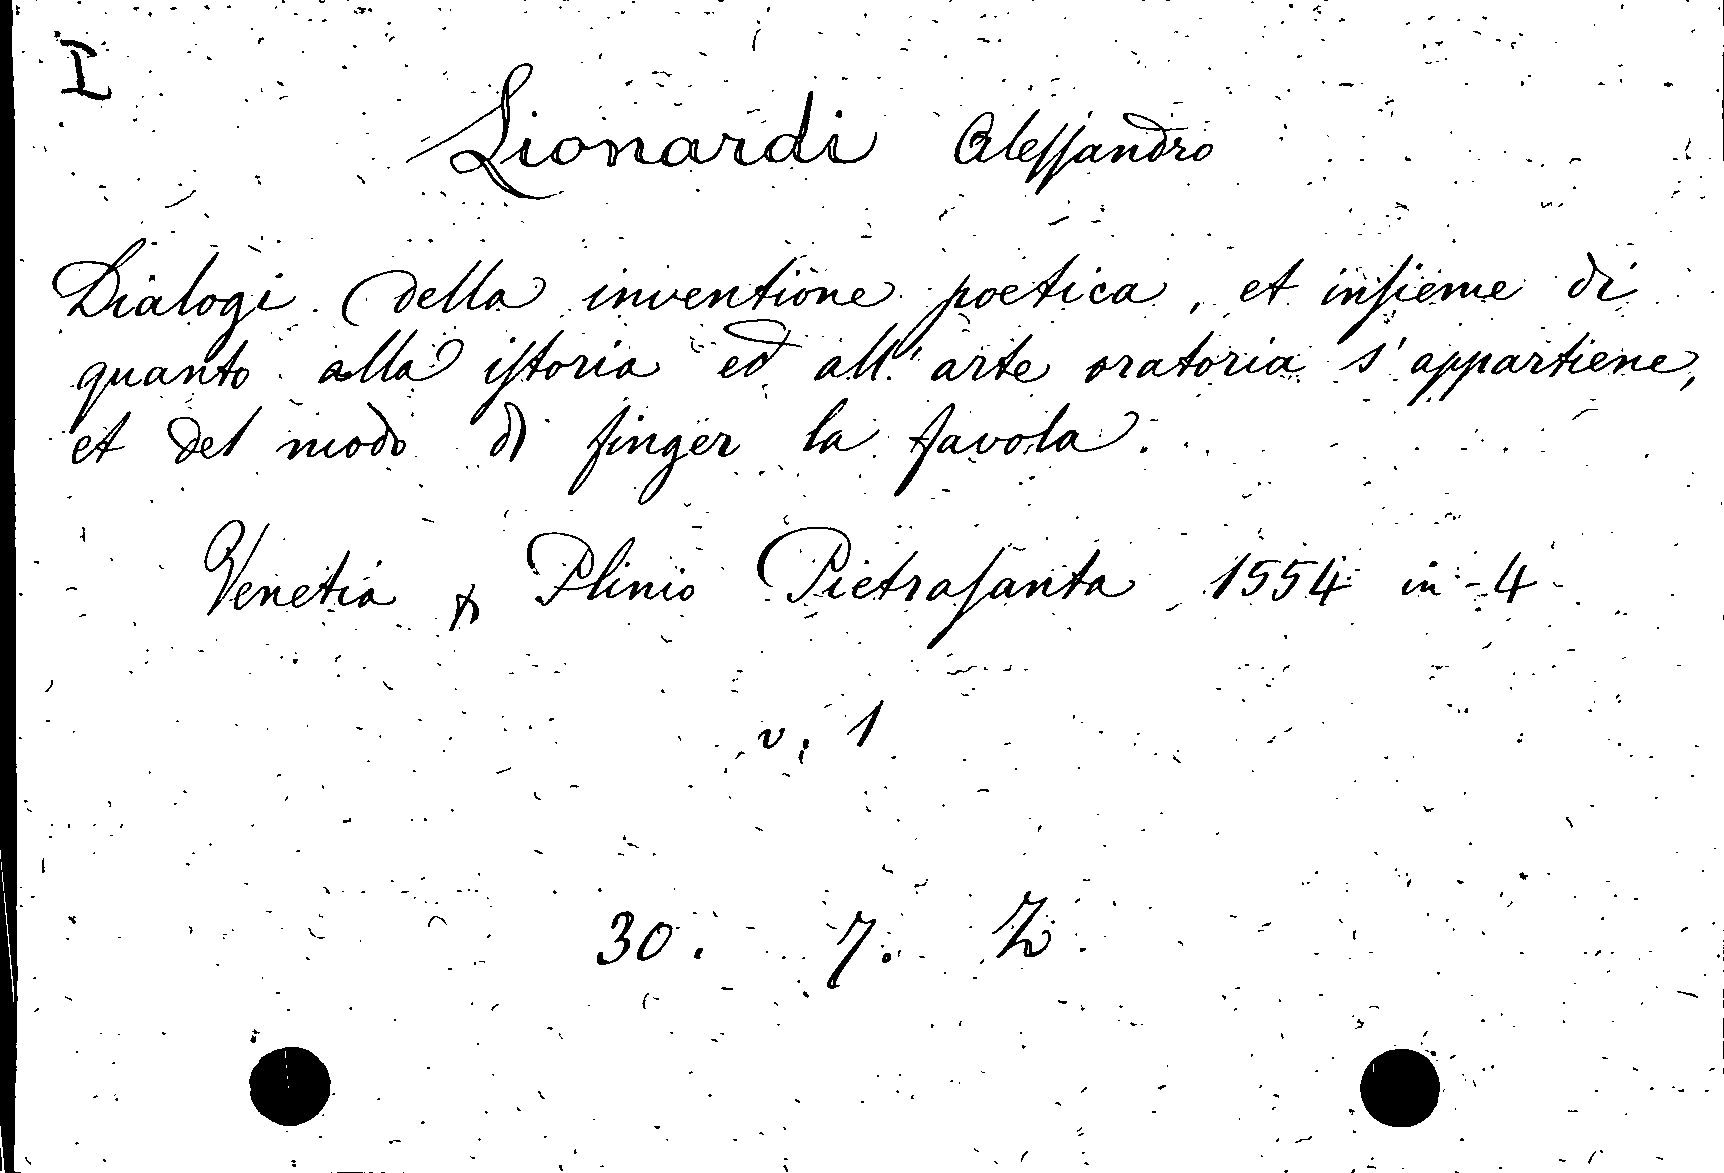 I
Lionardi Alessandro
Dialogi della inventione poetica, et insieme di
quanto alla istoria ed all'arte oratoria s'appartiene,
et del modo di finger la favola.
Venetia p Plinio Pietrasanta 1554 in-4
v. 1
30. 7. Z